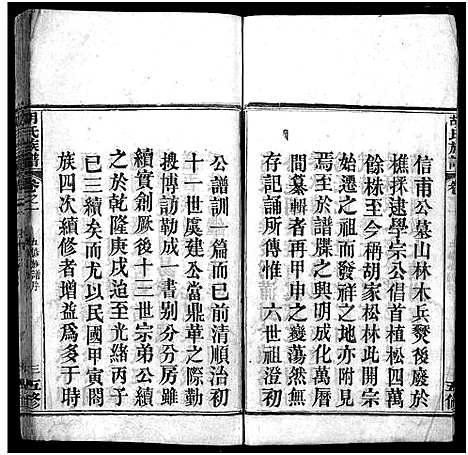 胡氏族譜 卷
五修
信甫公墓山林木兵燹後廢於
樵採逮學宗公倡首植松四千
餘株至今稱胡家松林巳開宗
遷之祖而發祥之地亦附見
譜牒之興明成化萬厯
間纂輯者再甲申之蕩然無
存記誦所傳惟 六世祖澄初
公譜訓一篇而已前清順治初
十一世虞建公當鼎革之際勤
搜博訪勒成一書別分分分
續實創厥後十三世宗弟公續
之於乾隆庚戌迨至光緒丙子
已三續矣而尤以民國甲寅閤
族四次續修者增益爲多于時
胡氏族譜 卷之一
三 五修